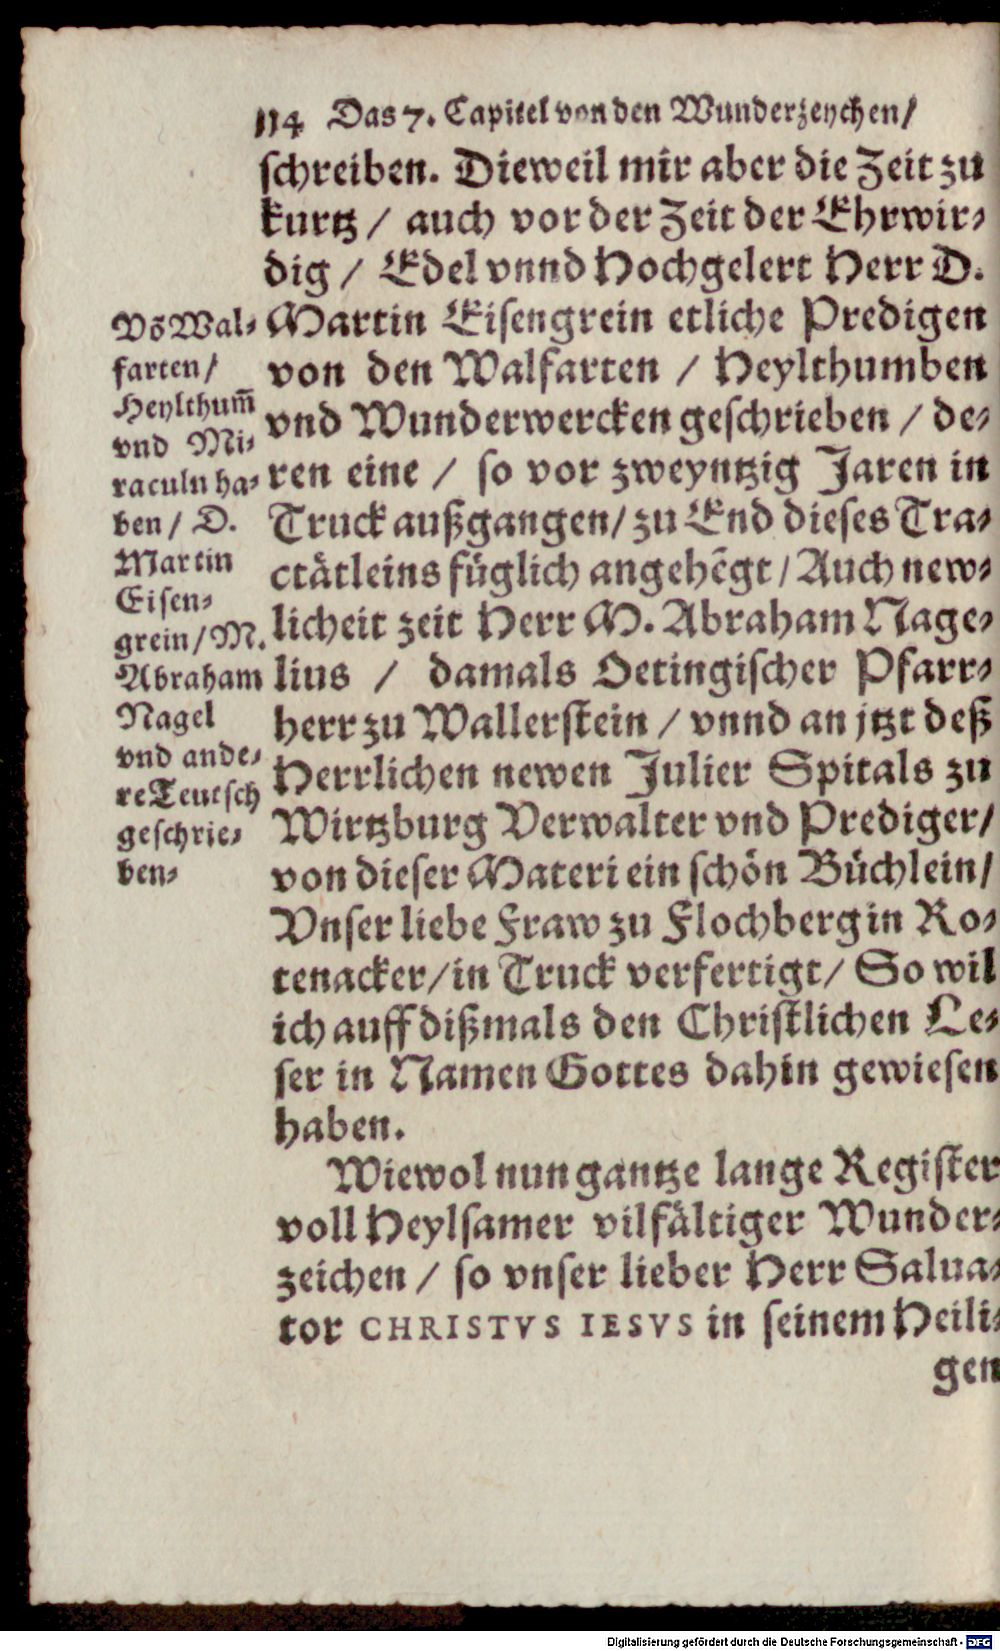 114 Das 7. Capitel von den Wunderzeychen/
schreiben. Dieweil mir aber die Zeit zu
kurtz / auch vor der Zeit der Ehrwir-
dig / Edel vnnd Hochgelert Herr D.
Martin Eisengrein etliche Predigen
von den Walfarten / Heylthumben
vnd Wunderwercken geschrieben / de-
ren eine / so vor zweyntzig Jaren in
Truck außgangen/ zu End dieses Tra-
ctätleins füglich angehẽgt / Auch new-
licheit zeit Herr M. Abraham Nage-
lius / damals Oetingischer Pfarr-
herr zu Wallerstein / vnnd an jtzt deß
Herrlichen newen Julier Spitals zu
Wirtzburg Verwalter vnd Prediger/
von dieser Materi ein schön Büchlein/
Vnser liebe Fraw zu Flochberg in Ro-
tenacker/ in Truck verfertigt/ So wil
ich auff dißmals den Christlichen Le-
ser in Namen Gottes dahin gewiesen
haben.
Wiewol nun gantze lange Register
voll Heylsamer vilfältiger Wunder-
zeichen / so vnser lieber Herr Salua-
tor CHRISTVS IESVS in seinem Heili-
gen
Võ Wal-
farten/
Heylthum̃
vnd Mi-
raculn ha-
ben / D.
Martin
Eisen-
grein/ M.
Abraham
Nagel
vnd ande-
re Teutsch
geschrie-
ben-
Digitalisierung gefördert durch die Deutsche Forschungsgemeinschaft - DFG